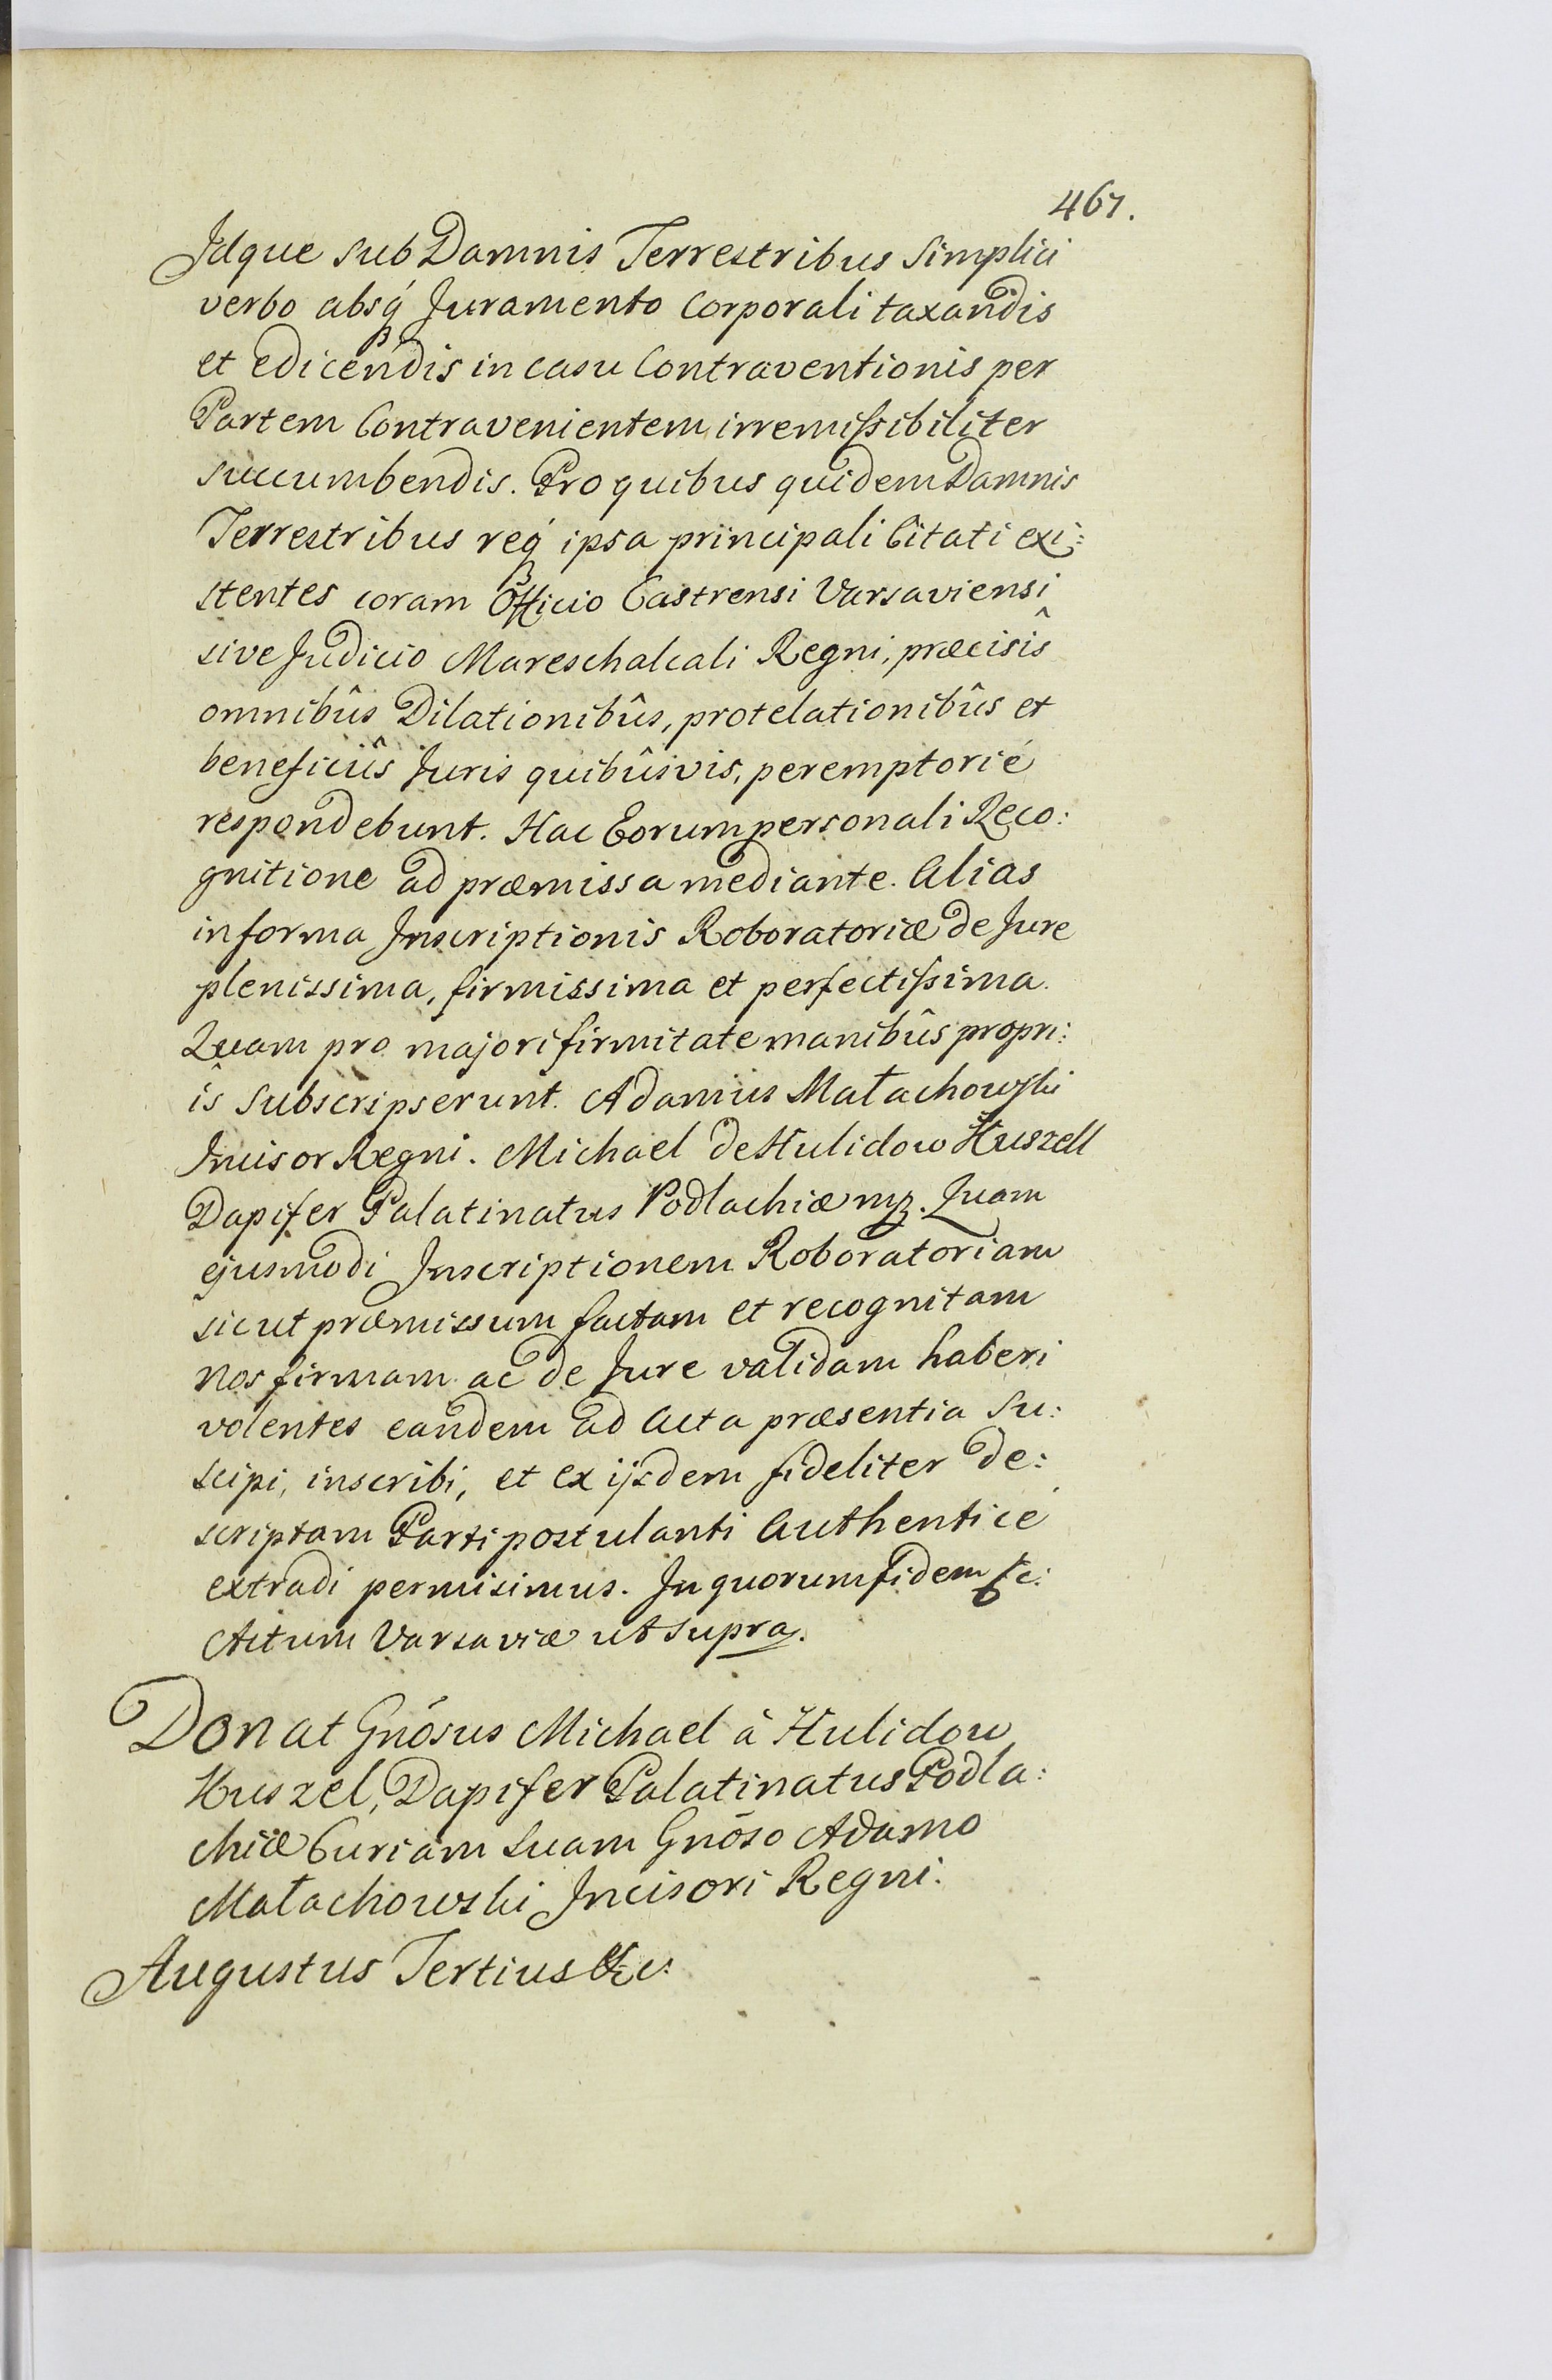 467.
Idque sub Damnis Terrestribus simplici
verbo absq́ꝫ Juramento Corporali taxandis
et edicendis in casu Contraventionis per
Partem Contravenientem irremiſsibiliter
succumbendis. Pro quibus quidem Damnis
Terrestribus req́ꝫ ipsa principali Citati exi:
stentes coram Officio Castrensi Varsaviensi
sive Judicio Mareschalcali Regni, præcisîs
omnibûs Dilationibûs, protelationibûs et
beneficiîs Juris quibûsvis, peremptorié
respondebunt. Hac Eorum personali Reco:
gnitione ad præmissa mediante. Alias
in forma Inscriptionis Roboratoriæ de Jure
plenissima, firmissima et perfectiſsima.
Quam pro majori firmitate manibûs propri:
îs subscripserunt. Adamus Małachowski
Incisor Regni. Michael de Hulidow Huszell
Dapifer Palatinatus Podlachiæ mpꝫ. Quam
ejusmodi Inscriptionem Roboratoriam
sicut præmissum factam et recognitam
Nos firmam ac de Jure validam haberi
volentes eandem ad Acta præsentia su:
scipi, inscribi, et ex ijsdem fideliter de:
scriptam Parti postulanti Authenticé
extradi permisimus. In quorum fidem &c:
Actum Varsaviæ ut supra.
Donat Gnōsus Michael â Hulidow
Huszel, Dapifer Palatinatus Podla:
chiæ Curiam suam Gnōso Adamo
Małachowski Incisori Regni.
Augustus Tertius &c: